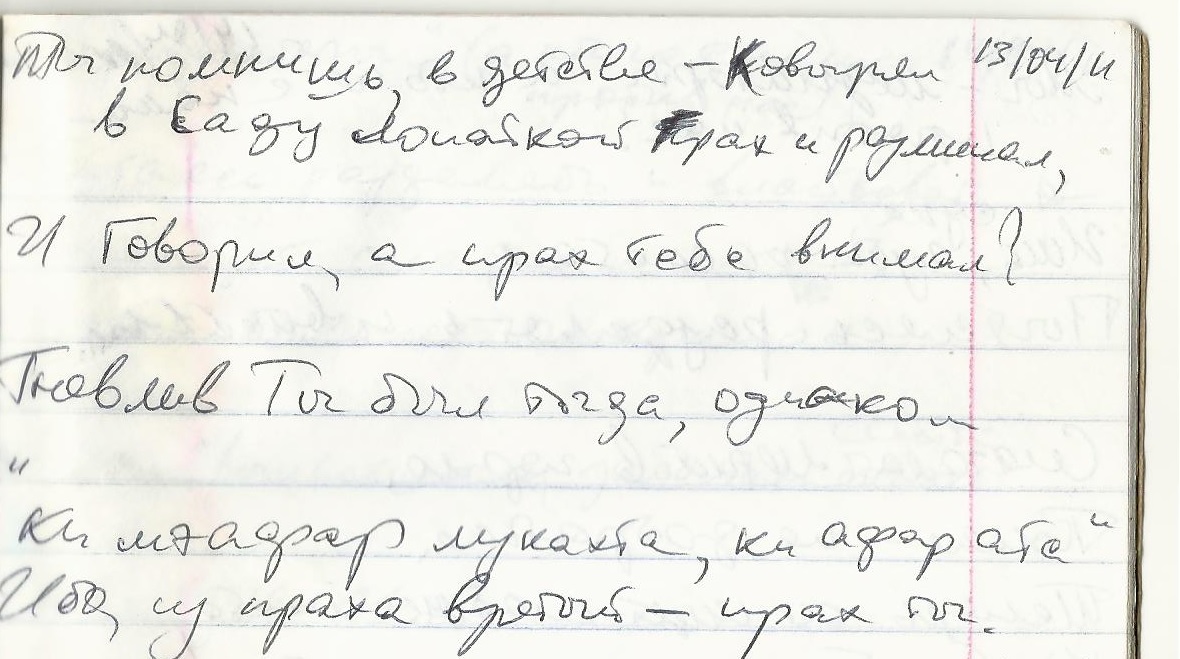 Ты помнишь, в детстве – Ковырял 13/04/11
в Саду лопаткой прах и разминал,
И Говорил, а прах тебе внимал?
Гневлив Ты был тогда, однако
"
ки ме афар лукахта, ки афар ата"
Ибо, из праха взятый – прах ты.